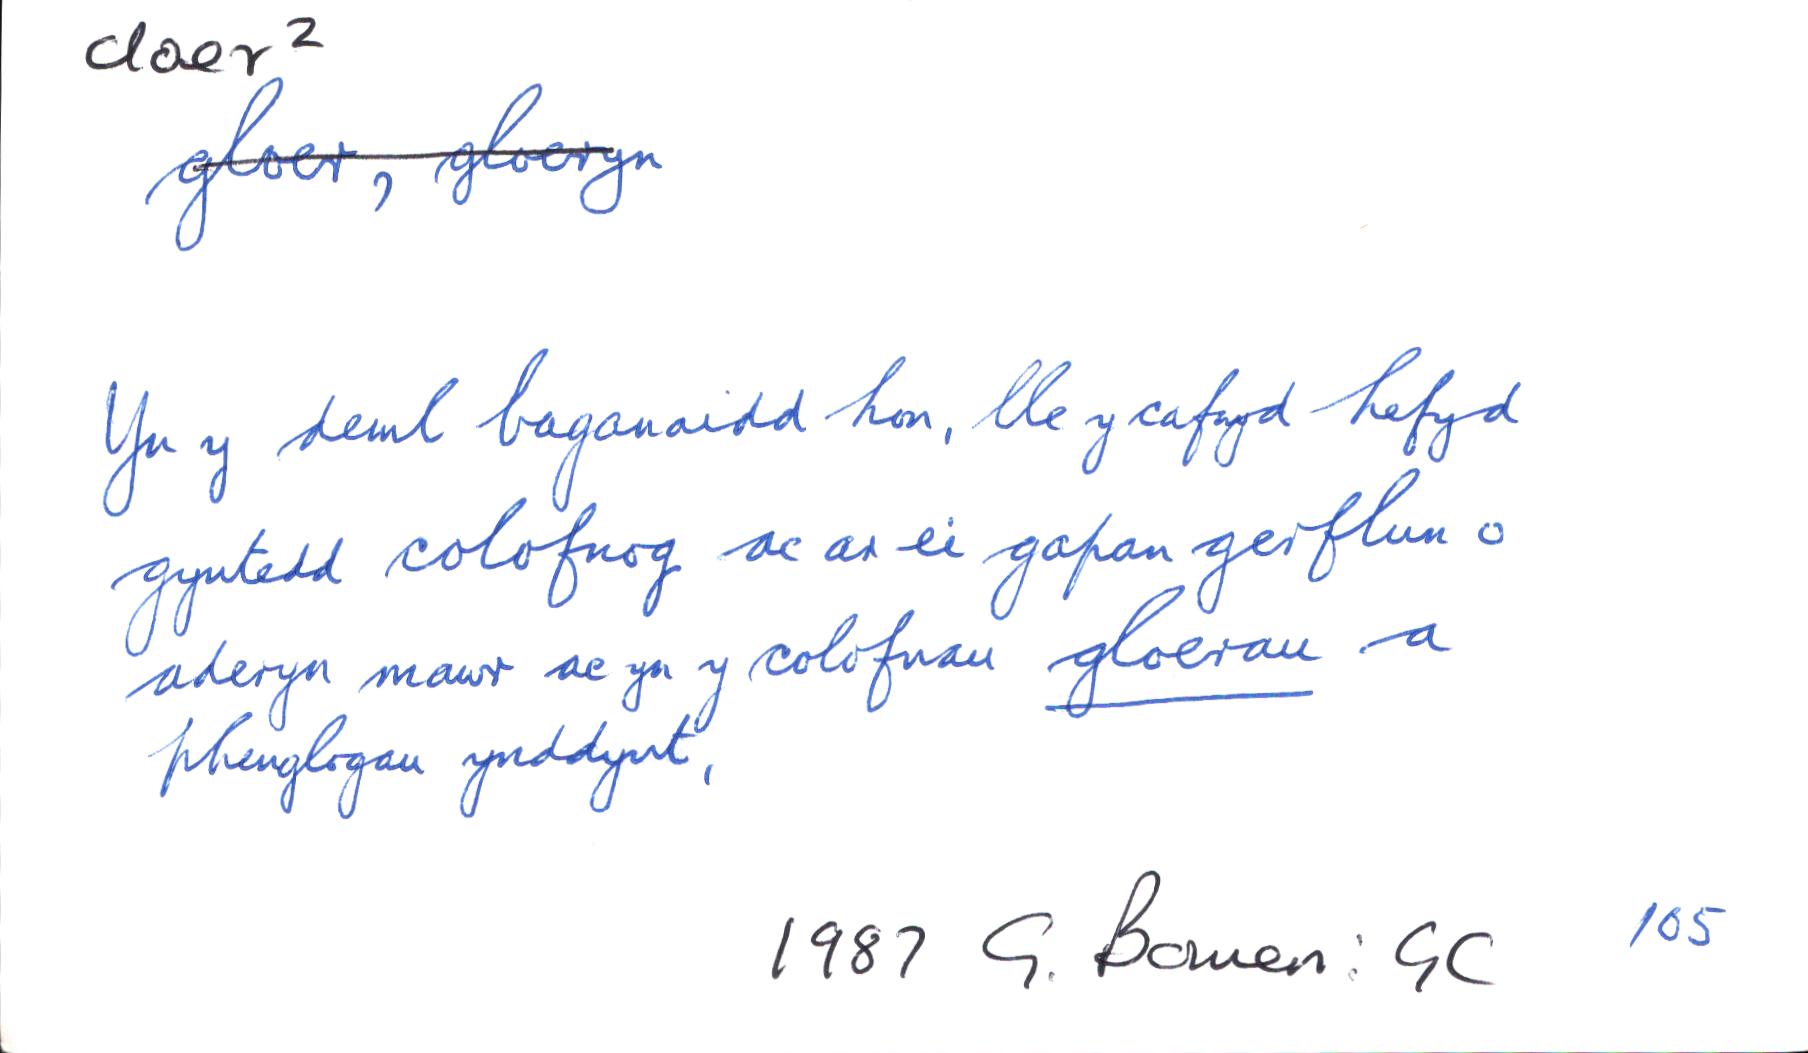 cloer²
gloer, gloeryn
Yn y deml baganaidd hon, lle y cafwyd hefyd
gyntedd colofnog ac ar ei gapan gerflun o
aderyn mawr ac yn y colofnau gloerau a
phenglogau ynddynt,
1987 G. Bowen: GC 105